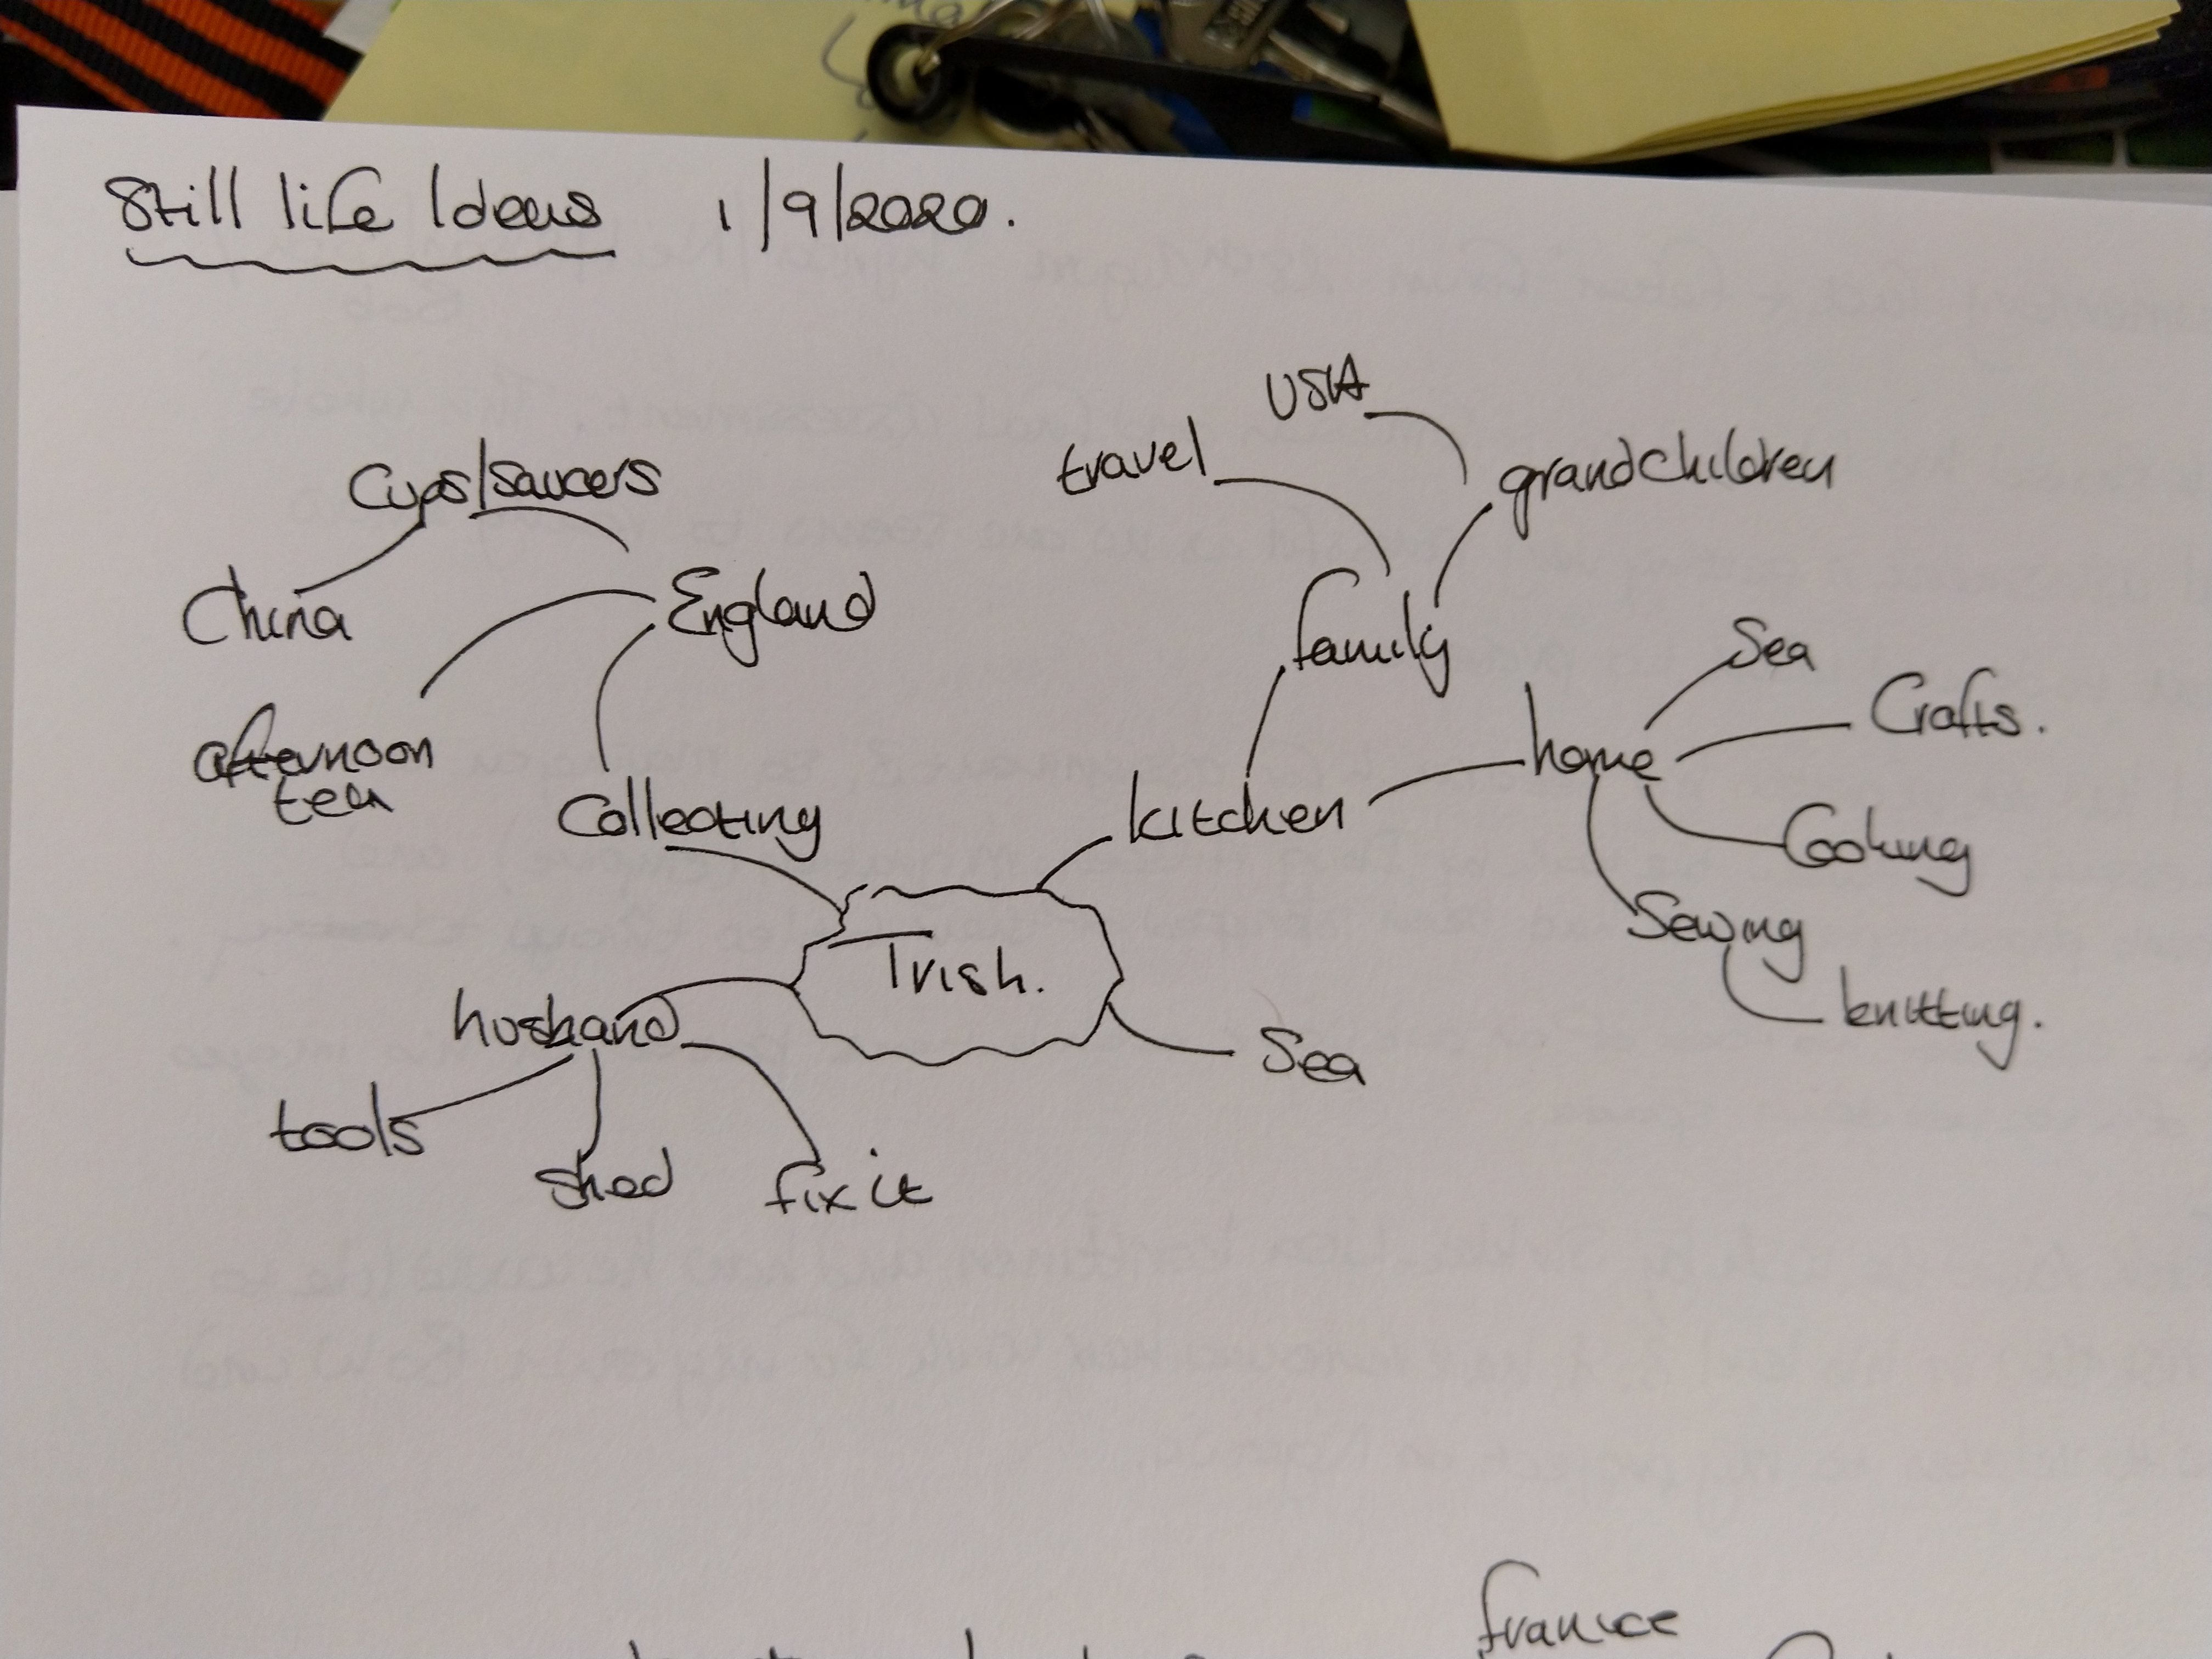 Still life Ideas 1/9/2020.
USA
travel
grandchildren
Cups/saucers
China
England
family
Sea
Crafts.
home
afternoon
tea
Collecting
kitchen
Cooking
Sewing
Trish.
husband
knitting.
Sea
tools
shed
fix it